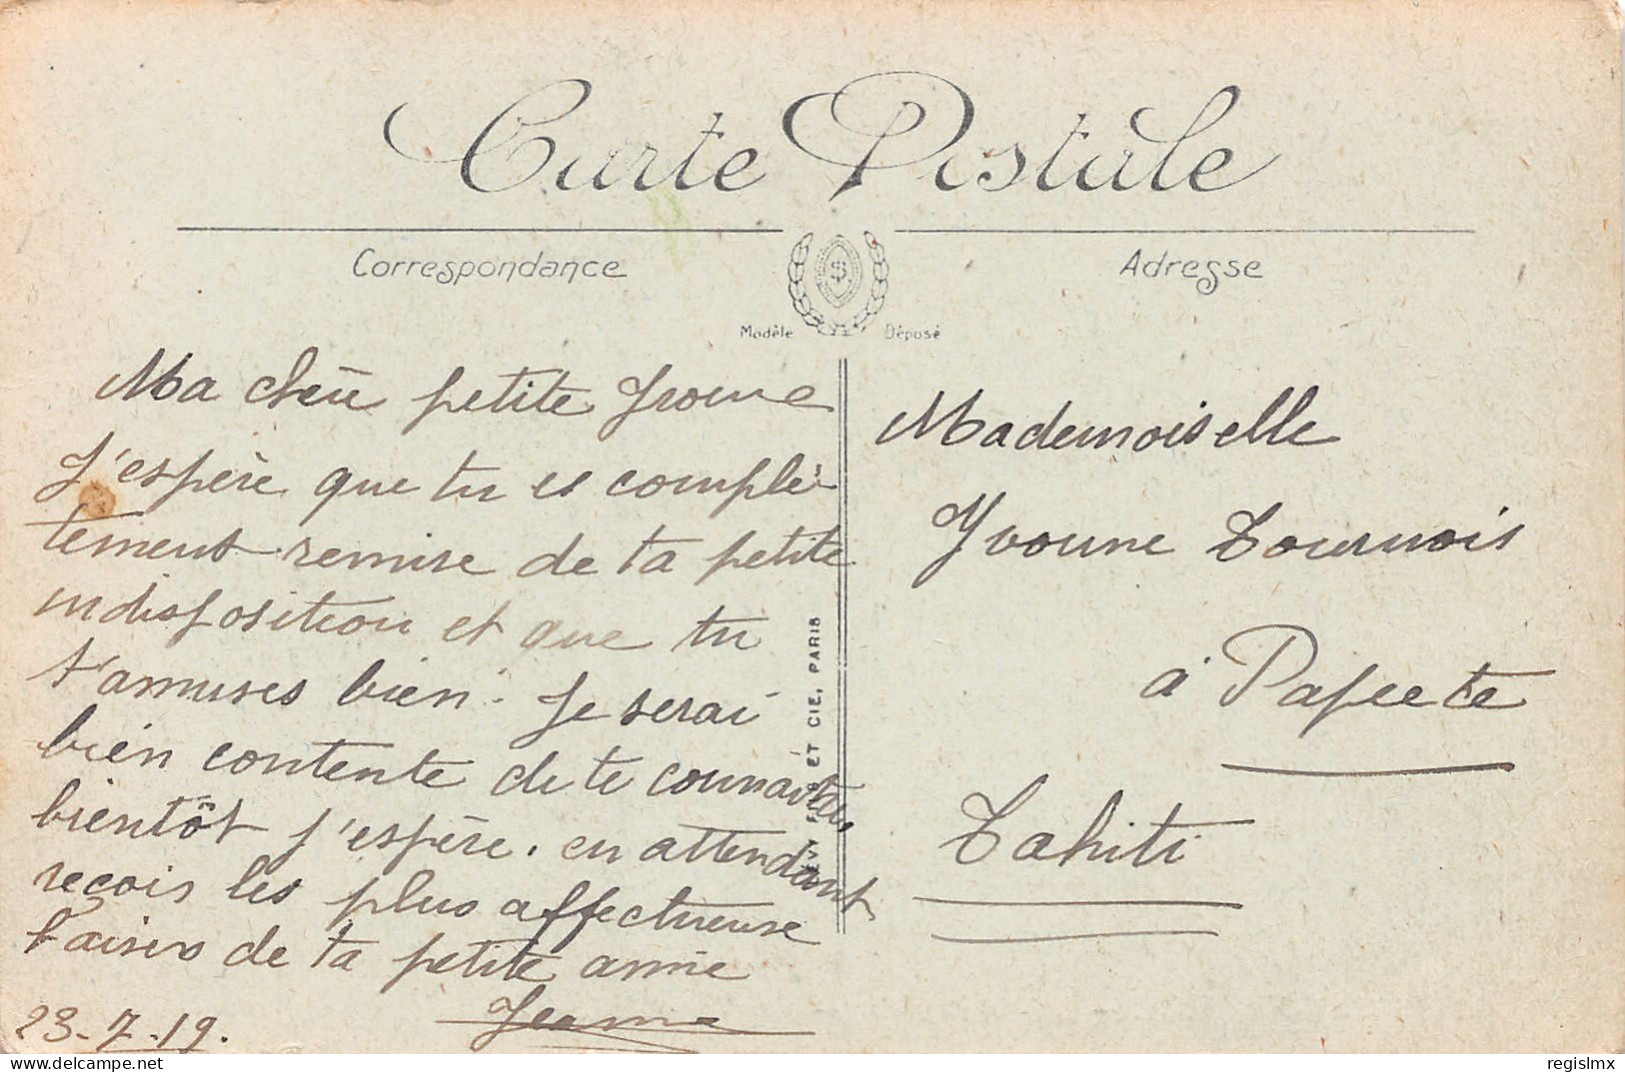 Carte Postale
Correspondance
Adresse
Modèle Déposé
Ma chère petite Yvonne
J'espère que tu es complè-
tement remise de ta petite
indisposition et que tu
t'amuses bien. Je serai
bien contente de te connaître
bientôt j'espère. en attendant
reçois les plus affectueuse
baisers de ta petite amie
Jeanne
23-7-19.
ET CIE, PARIS
Mademoiselle
Yvonne Tournois
à Papeete
Tahiti
regislmx